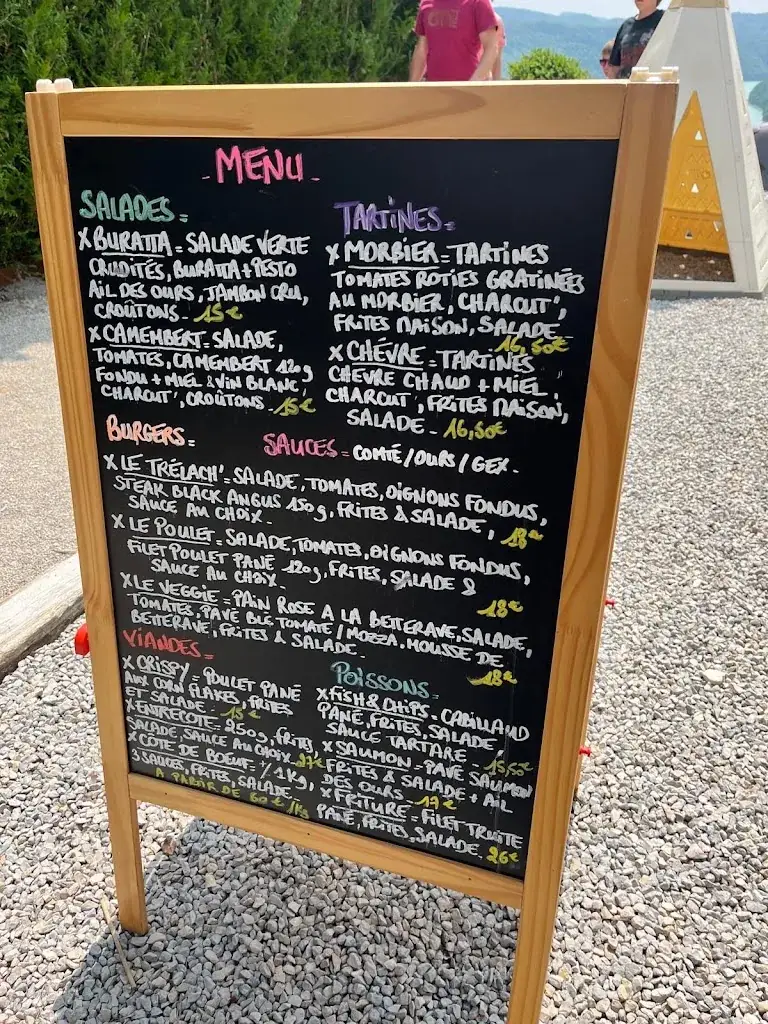 - MENU -
SALADES =
X BURATTA = SALADE VERTE
CRUDITÉS, BURATTA + PESTO
AIL DES OURS, JAMBON CRU,
CROÛTONS - 15€
X CAMEMBERT = SALADE,
TOMATES, CAMEMBERT 120g
FONDU + MIEL & VIN BLANC,
CHARCUT', CROÛTONS - 15€
TARTINES =
X MORBIER = TARTINES
TOMATES ROTIES GRATINÉES
AU MORBIER, CHARCUT',
FRITES MAISON, SALADE
16,50€
X CHÉVRE = TARTINES
CHÉVRE CHAUD + MIEL,
CHARCUT', FRITES MAISON,
SALADE - 16,50€
BURGERS =
SAUCES = COMTÉ / OURS / GEX -
X LE TRÉLACH' = SALADE, TOMATES, OIGNONS FONDUS,
STEAK BLACK ANGUS 150g, FRITES & SALADE,
SAUCE AU CHOIX - 18€
X LE POULET = SALADE, TOMATES, OIGNONS FONDUS,
FILET POULET PANÉ 120g, FRITES, SALADE &
SAUCE AU CHOIX - 18€
X LE VEGGIE = PAIN ROSE A LA BETTERAVE, SALADE,
TOMATES, PAVÉ BLÉ TOMATE / MOZZA, MOUSSE DE
BETTERAVE, FRITES & SALADE - 18€
VIANDES =
X CRISPY = POULET PANÉ
AUX CORN FLAKES, FRITES
ET SALADE - 15€
X ENTRECOTE = 250g, FRITES,
SALADE, SAUCE AU CHOIX - 27€
X CÔTE DE BOEUF = +/- 1Kg,
3 SAUCES, FRITES, SALADE.
A PARTIR DE 60€/Kg
POISSONS =
X FISH & CHIPS = CABILLAUD
PANÉ, FRITES, SALADE,
SAUCE TARTARE - 15,50€
X SAUMON = PAVÉ SAUMON
FRITES & SALADE + AIL
DES OURS - 17€
X FRITURE = FILET TRUITE
PANÉ, FRITES, SALADE - 26€